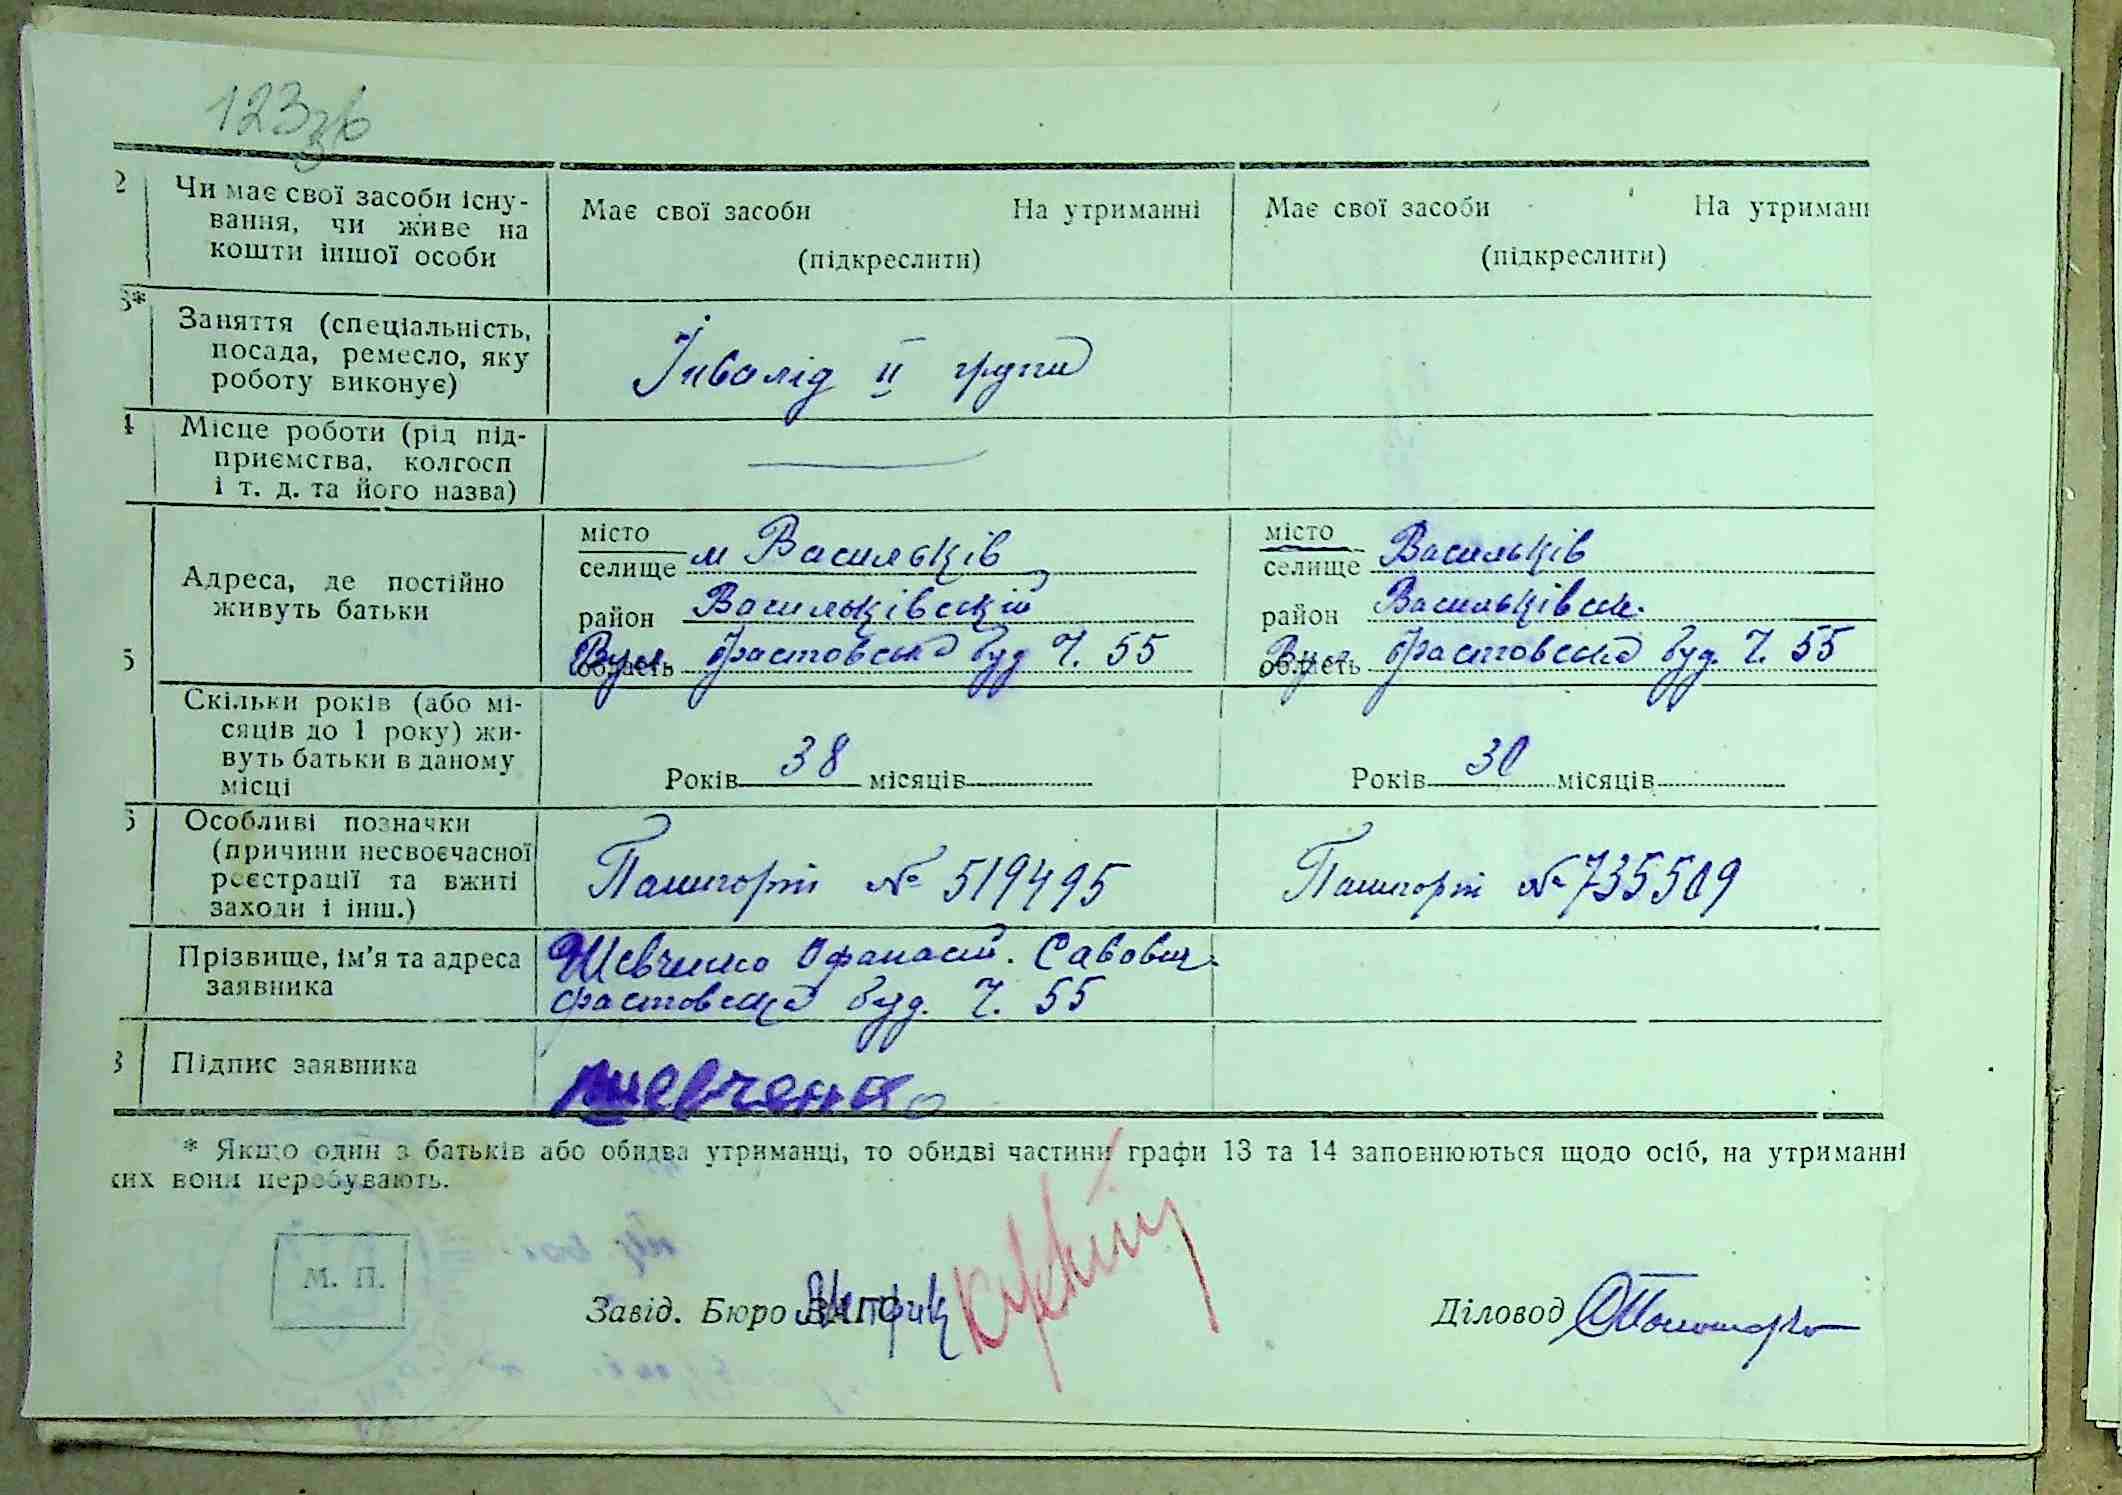 123зв
2 Чи має свої засоби існу-
вання, чи живе на
кошти іншої особи
Має свої засоби На утриманні
(підкреслити)
Має свої засоби На утриманн
(підкреслити)
3* Заняття (спеціальність,
посада, ремесло, яку
роботу виконує)
Інвалід ІІ групи
4 Місце роботи (рід під-
приємства, колгосп
і т. д. та його назва)
5 Адреса, де постійно
живуть батьки
місто
селище м Васильків
район Васильківский
область Вул. Фастовська буд Ч. 55
місто
селище Васильків
район Васильківск.
область Вул Фастовська буд. Ч. 55
Скільки років (або мі-
сяців до 1 року) жи-
вуть батьки в даному
місці
Років 38 місяців
Років 30 місяців
6 Особливі позначки
(причини несвоєчасної
реєстрації та вжиті
заходи і інш.)
Пашпорт № 519495
Пашпорт № 735509
Прізвище, ім'я та адреса
заявника
Шевченко Офанасій. Савович.
Фастовська буд. Ч. 55
8 Підпис заявника
Шевченко
* Якщо один з батьків або обидва утриманці, то обидві частини графи 13 та 14 заповнюються щодо осіб, на утриманні
ких вони перебувають.
М. П.
Завід. Бюро ЗАГС
Діловод